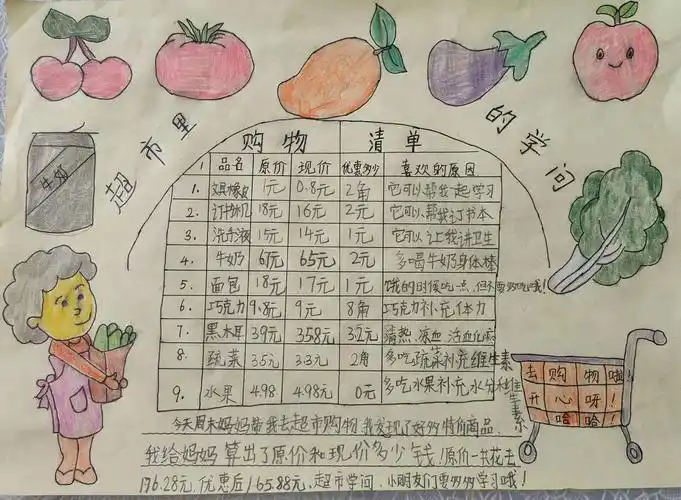 超市里的学问
购物清单
品名 原价 现价 优惠多少 喜欢的原因
1. 文具橡皮 1元 0.8元 2角 它可以帮我一起学习
2. 订书机 18元 16元 2元 它可以帮我订书本
3. 洗手液 15元 14元 1元 它可以让我讲卫生
4. 牛奶 67元 65元 2元 多喝牛奶身体棒
5. 面包 18元 17元 1元 饿的时候吃一点,但不要多吃哦!
6. 巧克力 9.8元 9元 8角 巧克力补充体力
7. 黑木耳 39元 35.8元 3.2元 清热、凉血、活血化瘀
8. 蔬菜 3.5元 3.3元 2角 多吃蔬菜补充维生素
9. 水果 4.98 4.98元 0元 多吃水果补充水分和维生素
今天周末妈妈带我去超市购物,我发现了好多特价商品.
我给妈妈算出了原价和现价多少钱!原价一共花去
176.28元,优惠后165.88元,超市学问,小朋友们要多多学习哦!
牛奶
去购物啦!
开心呀!
哈哈!